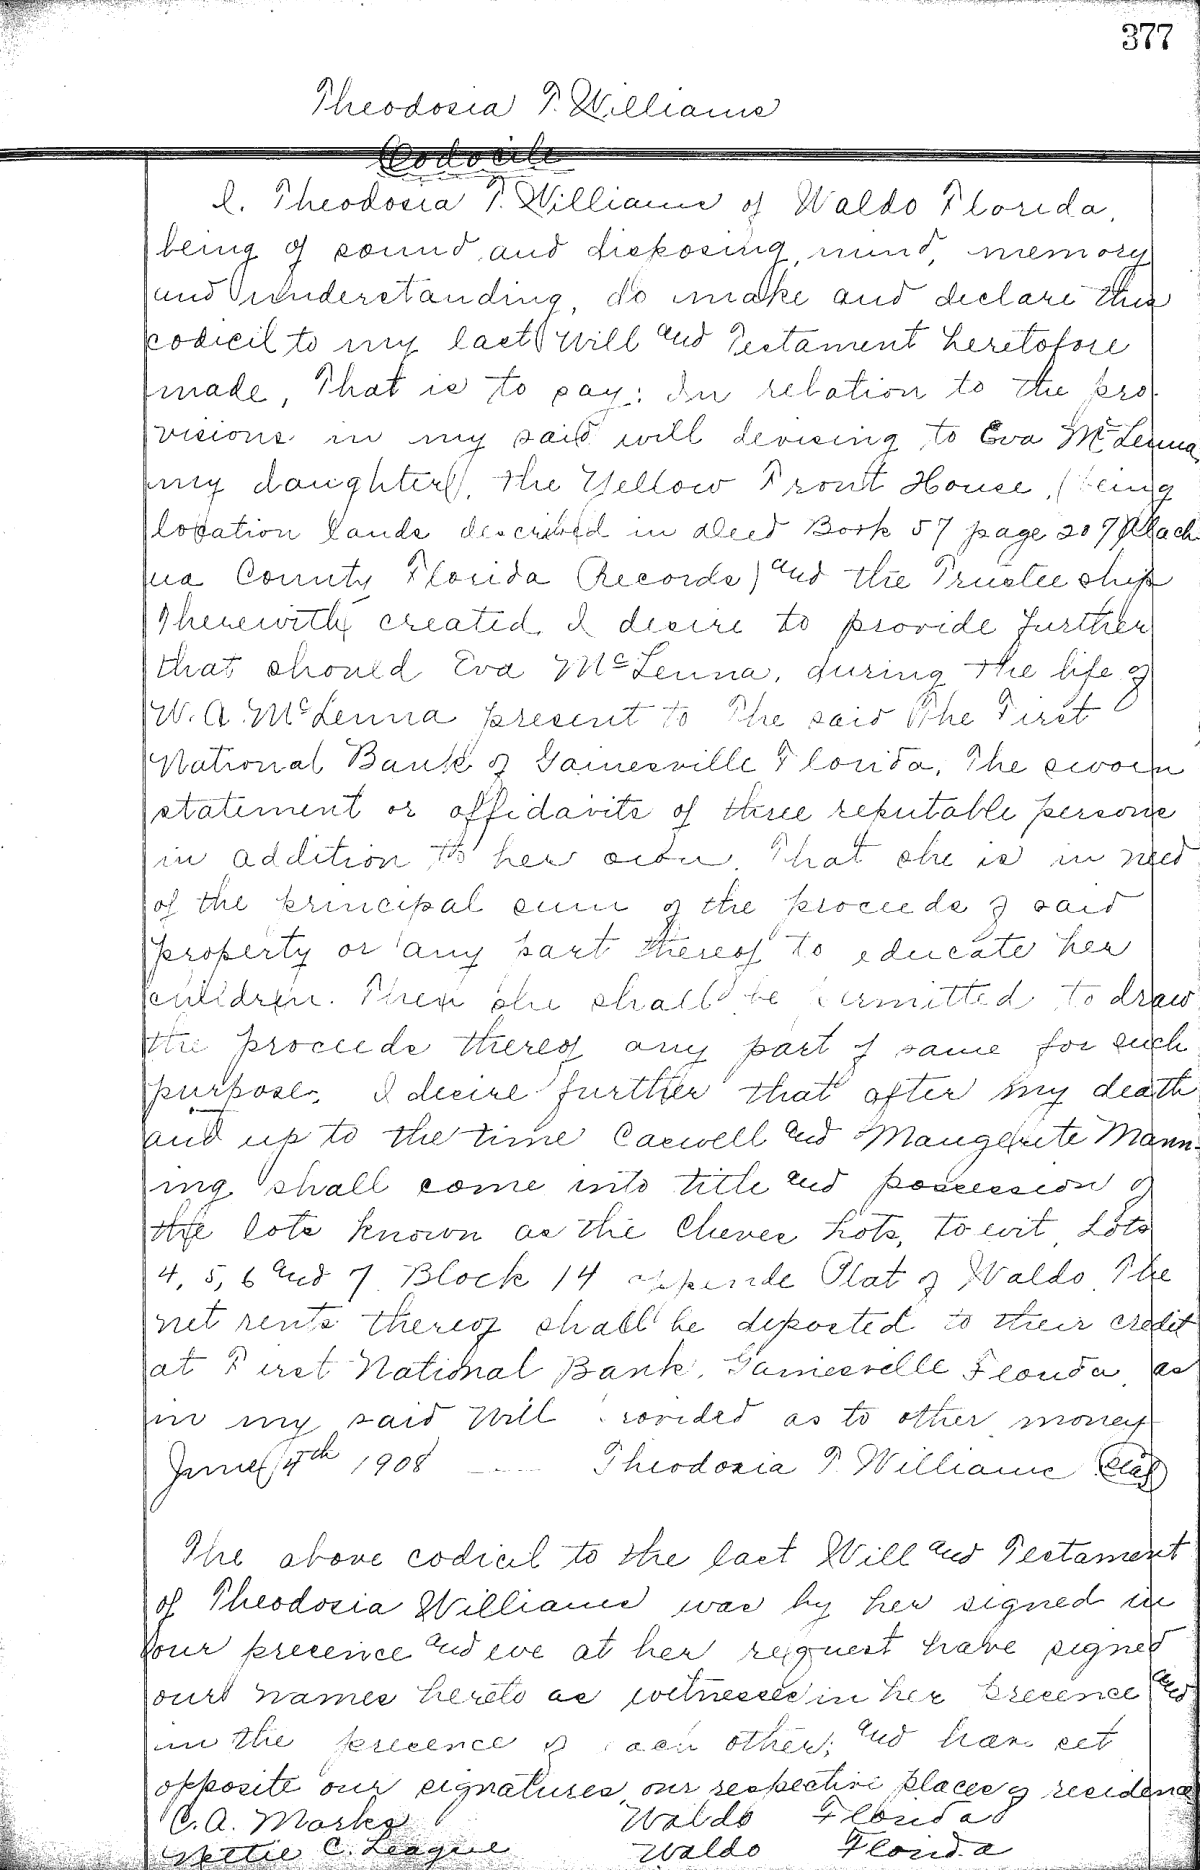 377
Theodosia T. Williams
Codocile
I. Theodosia T. Williams of Waldo Florida,
being of sound and disposing, mind, memory
and understanding, do make and declare this
codicil to my last Will and Testament heretofore
made, That is to say: In relation to the pro-
visions in my said will devising to Eva McLenna,
my daughter, the Yellow Front House, (being
location lands described in deed Book 57 page 207 Alach-
ua County Florida Records) and the Trustee ship
therewith created. I desire to provide further
that should Eva McLenna, during the life of
W. A. McLenna present to the said The First
National Bank of Gainesville Florida, the sworn
statement or affidavits of three reputable persons
in addition to her own. That she is in need
of the principal sum of the proceeds of said
property or any part thereof to educate her
children. Then she shall be permitted to draw
the proceeds thereof any part of same for such
purpose. I desire further that after my death
and up to the time Caswell and Maugerite Mann-
ing shall come into title and possession of
the lots known as the Cheves Lots, to wit, Lots
4, 5, 6 and 7 Block 14 Plat of Waldo. The
net rents thereof shall be deposted to their credit
at First National Bank. Gainesville Florida, as
in my said Will Provided as to other money
June 4th 1908 Theodosia T. Williams Seal
The above codicil to the last Will and Testament
of Theodosia Williams was by her signed in
our presence and we at her request have signed
our names hereto as witnesses in her presence and
in the presence of each other; and have set
opposite our signatures our respective places of residence
C. A. Marks Waldo Florida
Nettie C. League Waldo Florida